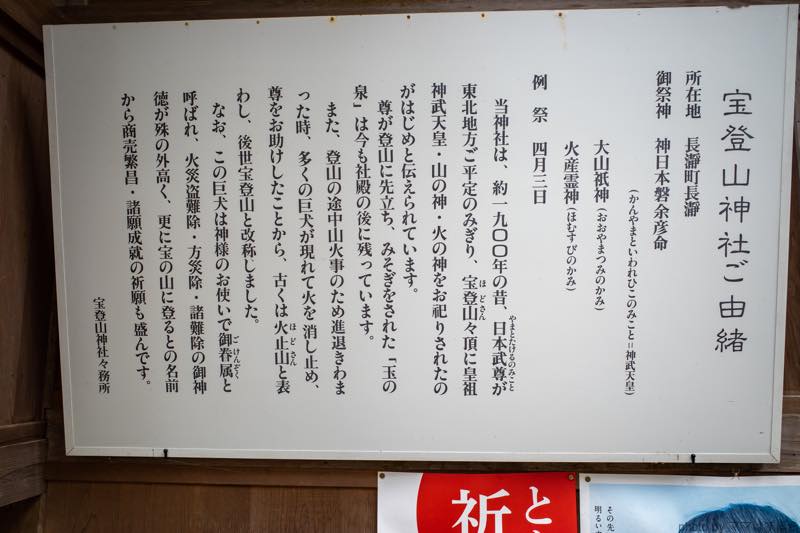 宝登山神社ご由緒
所在地　長瀞町長瀞
御祭神　神日本磐余彦命
(かんやまといわれひこのみこと=神武天皇)
大山祇神(おおやまつみのかみ)
火産霊神(ほむすびのかみ)
例　祭　四月三日
当神社は、約一九〇〇年の昔、日本武尊(やまとたけるのみこと)が
東北地方ご平定のみぎり、宝登山(ほどさん)々頂に皇祖
神武天皇・山の神・火の神をお祀りされたの
がはじめと伝えられています。
尊が登山に先立ち、みそぎをされた「玉の
泉」は今も社殿の後に残っています。
また、登山の途中山火事のため進退きわま
った時、多くの巨犬が現れて火を消し止め、
尊をお助けしたことから、古くは火止山(ほどさん)と表
わし、後世宝登山と改称しました。
なお、この巨犬は神様のお使いで御眷属(ごけんぞく)と
呼ばれ、火災盗難除・方災除・諸難除の御神
徳が殊の外高く、更に宝の山に登るとの名前
から商売繁昌・諸願成就の祈願も盛んです。
宝登山神社々務所
と
祈
その先
明るい
photo by